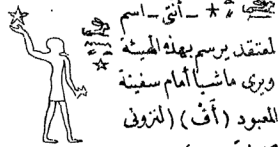 – أنثى – اسم
لمعتقد يرسم بهذه الهيئة
ويرى ماشيا أمام سفينة
المعبود ( أَفْ ) (